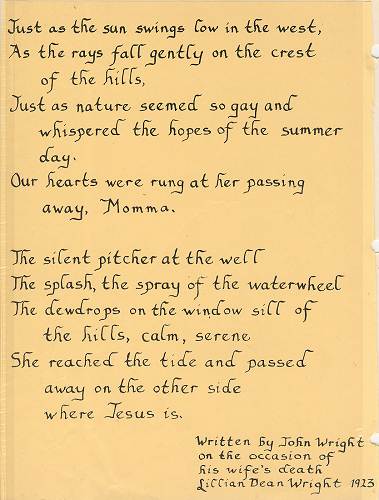 Just as the sun swings low in the west,
As the rays fall gently on the crest
of the hills,
Just as nature seemed so gay and
whispered the hopes of the summer
day.
Our hearts were rung at her passing
away, Momma.
The silent pitcher at the well
The splash, the spray of the waterwheel
The dewdrops on the window sill of
the hills, calm, serene
She reached the tide and passed
away on the other side
where Jesus is.
Written by John Wright
on the occasion of
his wife's death
Lillian Dean Wright 1923